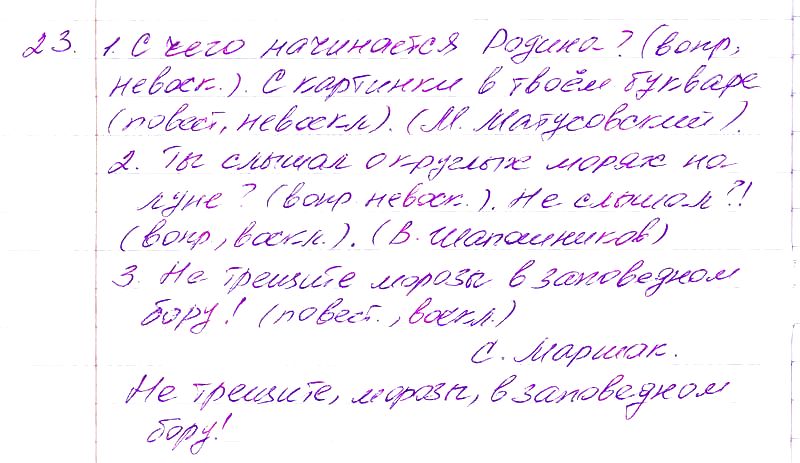 23. 1. С чего начинается Родина? (вопр,
невоск.). С картинки в твоём букваре
(повест, невоскл). (М. Матусовский).
2. Ты слышал о круглых морях на
луне? (вопр невоск.). Не слышал?!
(вопр, воскл.). (В. Шапошников)
3. Не трещите морозы в заповедном
бору! (повест., воскл.)
С. Маршак.
Не трещите, морозы, в заповедном
бору!